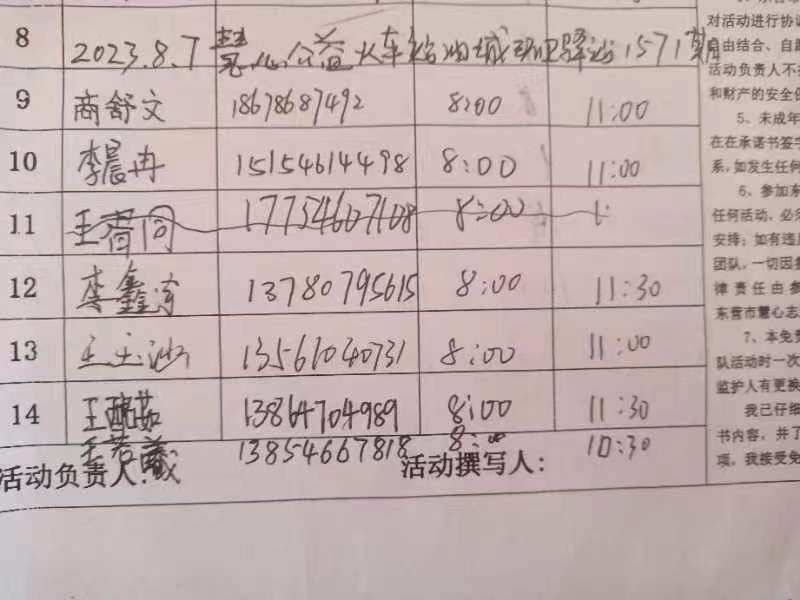 8 2023.8.7 慧心公益火车站油城驿站1571期
9 商舒文 18678687492 8:00 11:00
10 李晨冉 15154614498 8:00 11:00
11 王 同 17754607108 8:00
12 李鑫 13780795615 8:00 11:30
13 王玉 13561040731 8:00 11:00
14 王 茹 13864704989 8:00 11:30
王若曦 13854667818 8:00 10:30
活动负责人: 活动撰写人:
对活动进行协议
自由结合、自愿
活动负责人不
和财产的安全
5、未成年
在在承诺书签字
系,如发生任何
6、参加东
任何活动,必须
安排;如有违反
团队,一切因
律责任由参
东营市慧心志
7、本免责
队活动时一次
监护人有更换
我已仔细
书内容,并了
项,我接受免